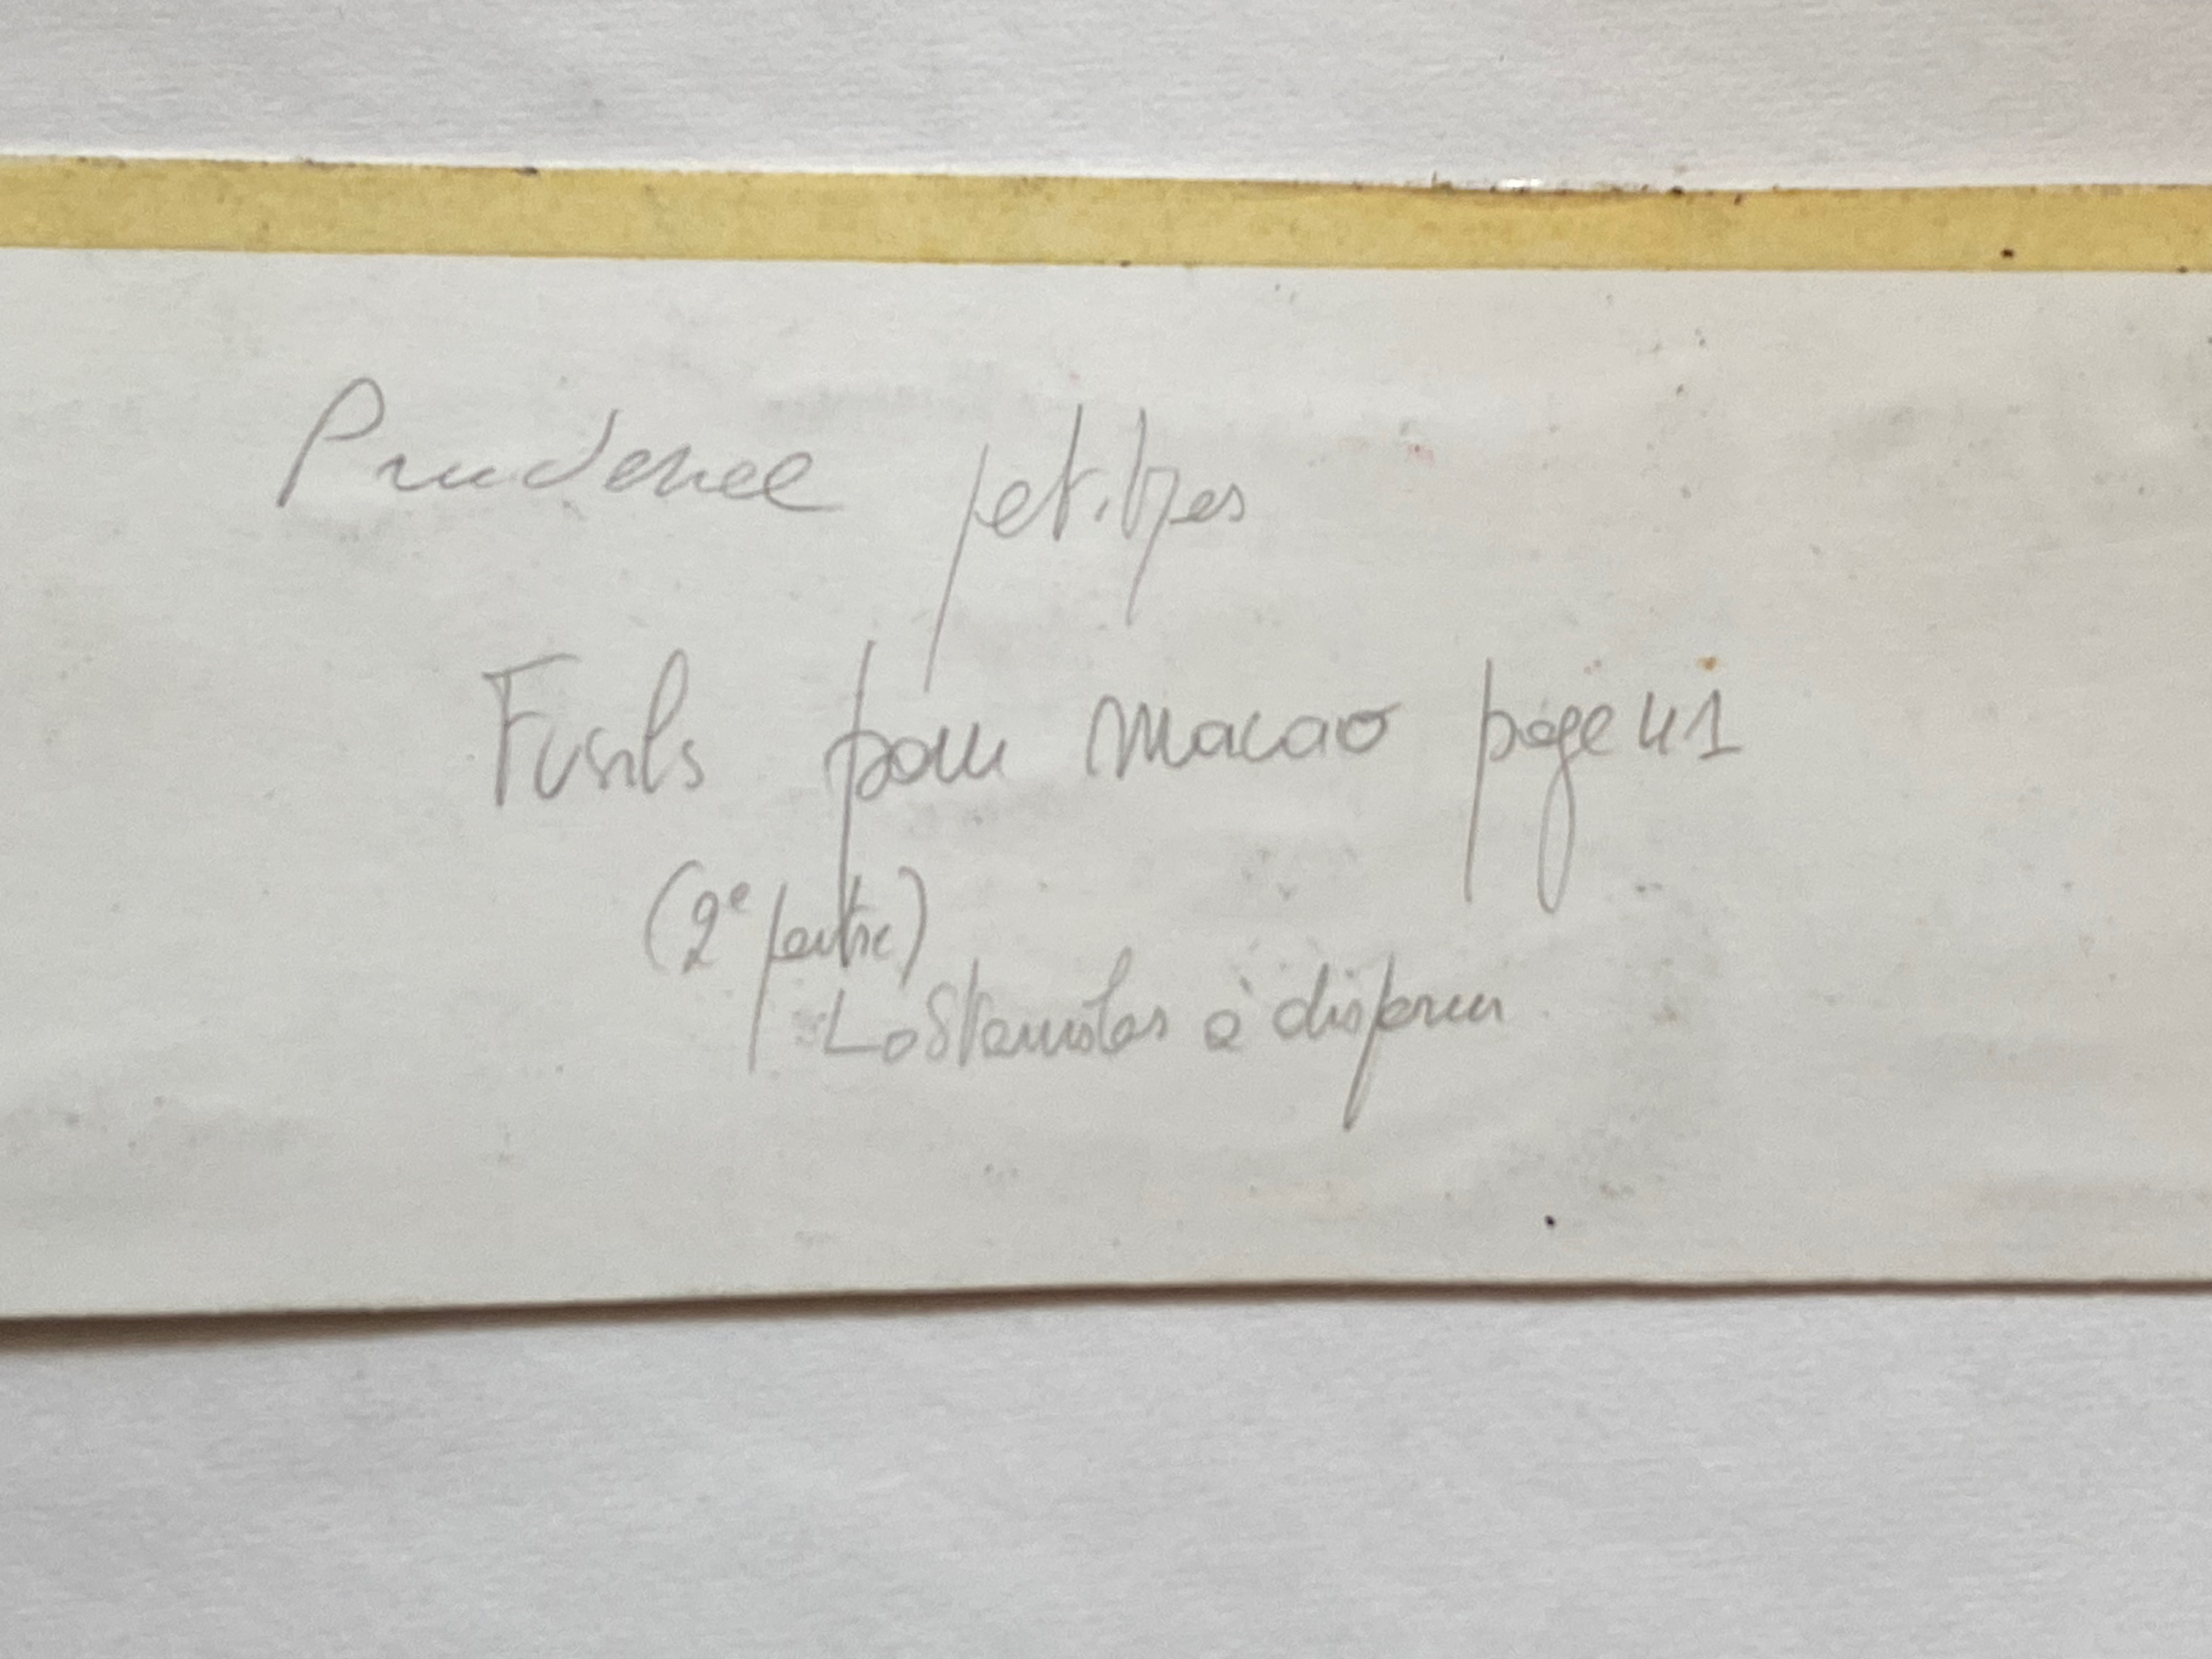 Prudence petitpas
Fusils pour Macao page 41
(2e partie)
La Stanislas à disparu